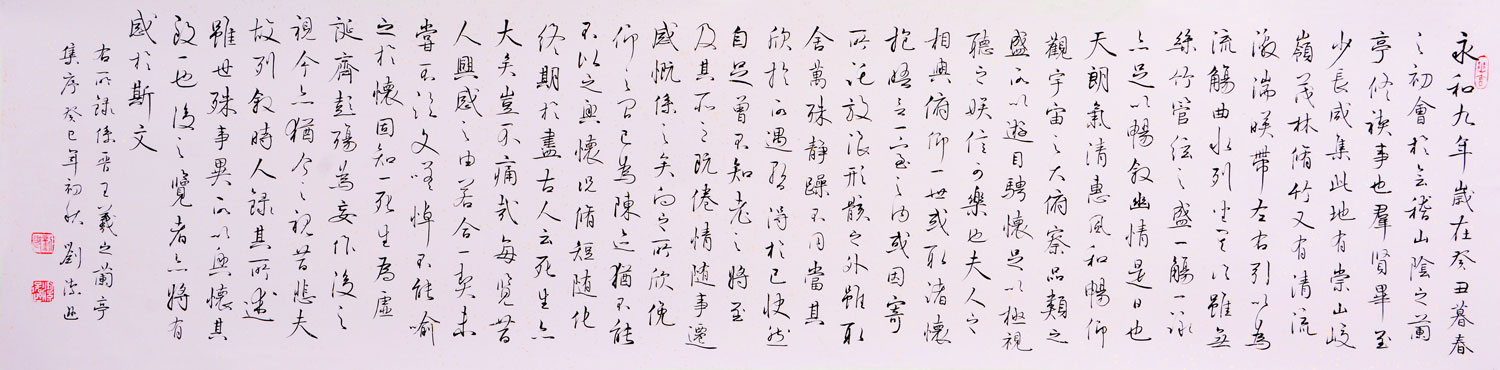 永和九年歲在癸丑暮春
之初會於會稽山陰之蘭
亭修禊事也羣賢畢至
少長咸集此地有崇山峻
嶺茂林脩竹又有清流
激湍暎帶左右引以為
流觴曲水列坐其次雖無
絲竹管弦之盛一觴一詠
亦足以暢敘幽情是日也
天朗氣清惠風和暢仰
觀宇宙之大俯察品類之
盛所以遊目騁懷足以極視
聽之娛信可樂也夫人之
相與俯仰一世或取諸懷
抱悟言一室之內或因寄
所託放浪形骸之外雖取
舍萬殊静躁不同當其
欣於所遇暫得於己快然
自足曾不知老之將至
及其所之既倦情随事遷
感慨係之矣向之所欣俛
仰之間已為陳迹猶不能
不以之興懷況脩短随化
終期於盡古人云死生亦
大矣豈不痛哉每覽昔
人興感之由若合一契未
嘗不臨文嗟悼不能喻
之於懷固知一死生為虛
誕齊彭殤為妄作後之
視今亦猶今之視昔悲夫
故列敘時人錄其所述
雖世殊事異所以興懷其
致一也後之覽者亦將有
感於斯文
右所錄係晉王羲之蘭亭
集序癸巳年初秋 劉